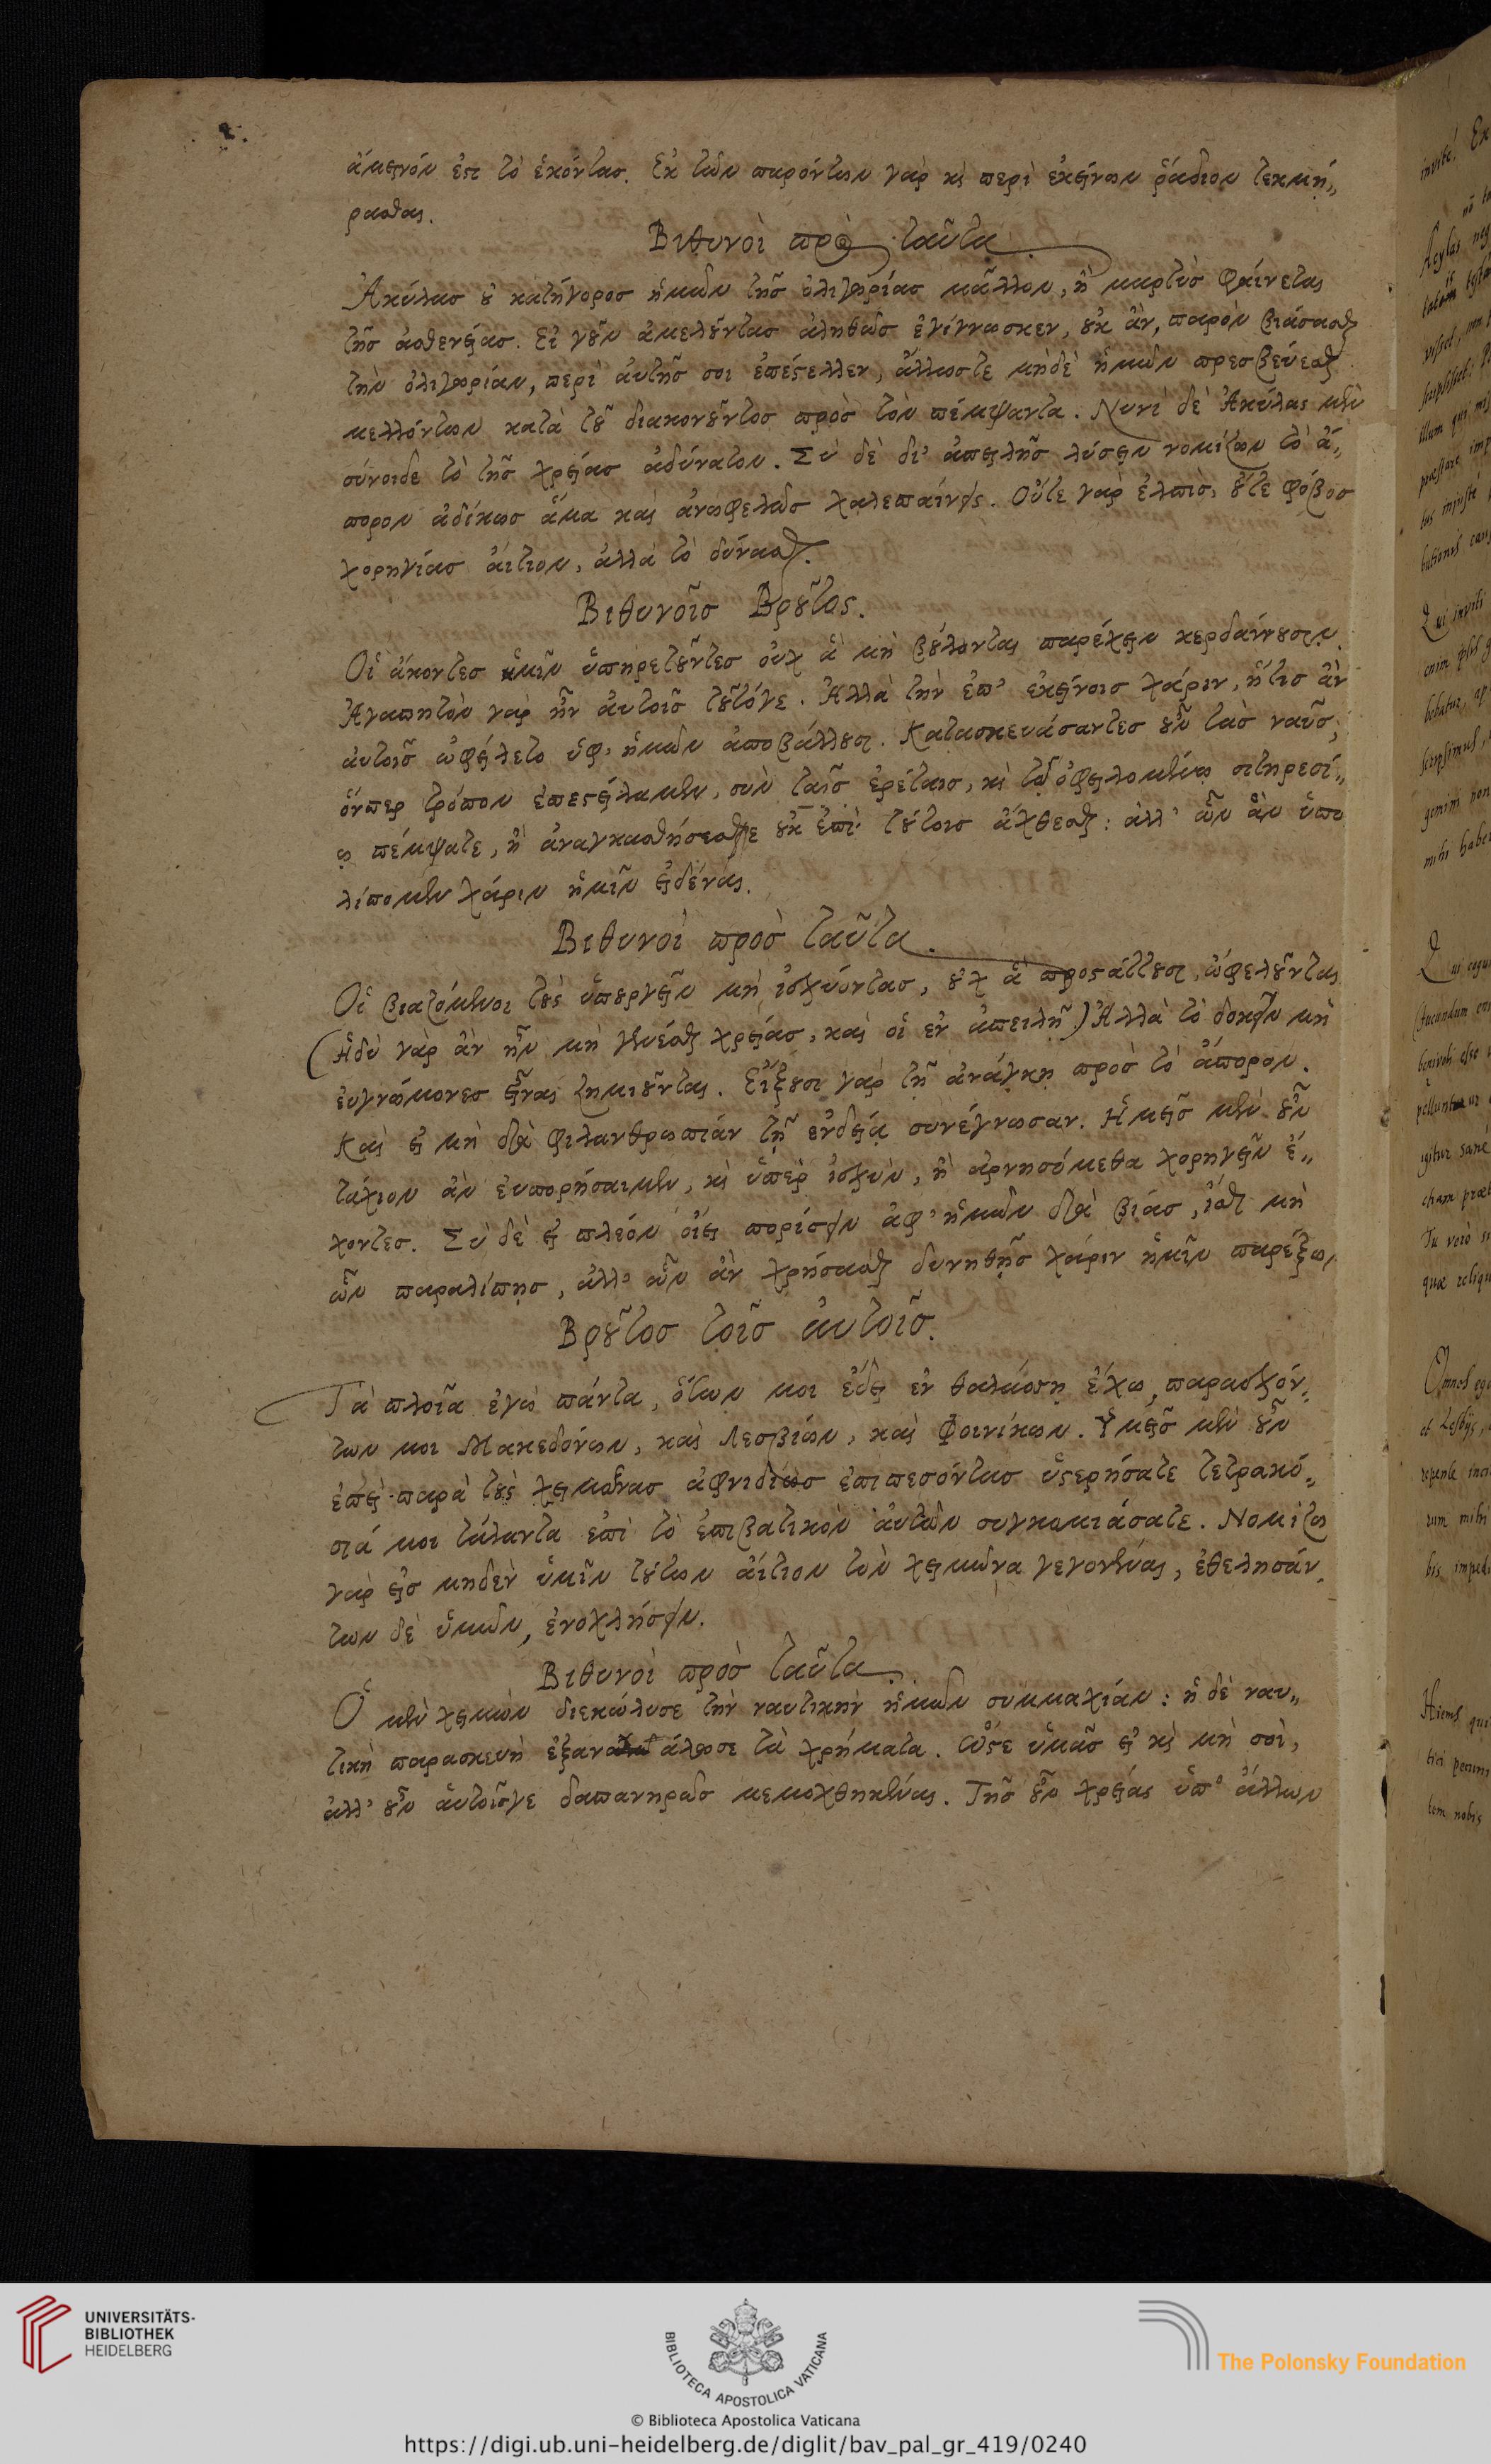 ἄμεινόν ἐστι τὸ ἑκόντας. Ἐκ τῶν παρόντων γὰρ καὶ περὶ ἐκείνων ῥάδιον τεκμή„
ρασθαι.
Βιθυνοὶ πρὸς ταῦτα
Ἀκύλας ὁ κατήγορος ἡμῶν τῆς ὀλιγωρίας μᾶλλον, ἢ μαρτὺς φαίνεται
τῆς ἀσθενείας. Εἰ γοῦν ἀμελοῦντας ἀληθῶς ἐγίγνωσκεν, οὐκ ἂν, παρὸν βιάσασθαι
τὴν ὀλιγωρίαν, περὶ αὐτῆς σοι ἐπέστελλεν, ἄλλωστε μηδὲ ἡμῶν πρεσβεύεσθαι
μελλόντων κατὰ τοῦ διακονοῦντος πρὸς τὸν πέμψαντα. Νυνὶ δὲ Ἀκύλας μὲν
σύνοιδε τὸ τῆς χρείας ἀδύνατον. Σὺ δὲ δι' ἀπειλῆς λύσειν νομίζων τὸ ἄ„
πορον ἀδίκως ἅμα καὶ ἀνωφελῶς χαλεπαίνεις. Οὔτε γὰρ ἐλπὶς, οὔτε φόβος
χορηγίας αἴτιον, ἀλλὰ τὸ δύνασθαι.
Βιθυνοῖς Βροῦτος.
Οἱ ἄκοντες ἡμῖν ὑπηρετοῦντες οὐχ ἃ μὴ βούλονται παρέχειν κερδαίνουσιν.
Ἀγαπητὸν γὰρ ἦν αὐτοῖς τοῦτόγε. Ἀλλὰ τὴν ἐπ' ἐκείνοις χάριν, ἥτις ἂν
αὐτοῖς ὠφείλετο ὑφ' ἡμῶν ἀποβάλλουσι. Κατασκευάσαντες οὖν τὰς ναῦς,
ὅνπερ τρόπον ἐπεστείλαμεν, σὺν ταῖς ἐρέταις, καὶ τῷ ὀφειλομένῳ σιτηρεσί„
ῳ πέμψατε, ἢ ἀναγκασθήσεσθε οὐκ ἐπὶ τούτοις ἄχθεσθαι: ἀλλ' ὧν ἂν ὑπο
λίπομεν χάριν ἡμῖν εἰδέναι.
Βιθυνοὶ πρὸς ταῦτα.
Οἱ βιαζόμενοι τοὺς ὑπουργεῖν μὴ ἰσχύοντας, οὐχ ἃ προστάττουσι, ὠφελοῦνται
(Ἡδὺ γὰρ ἂν ἦν μὴ γενέσθαι χρείας, καὶ οἱ ἐν ἀπειλῇ.) Ἀλλὰ τὸ δοκεῖν μὴ
εὐγνώμονες εἶναι ζημιοῦνται. Εἴξουσι γὰρ τῇ ἀνάγκῃ πρὸς τὸ ἄπορον.
Καὶ εἰ μὴ διὰ φιλανθρωπίαν τῇ ἐνδείᾳ συνέγνωσαν. Ἡμεῖς μὲν οὖν
τάχιον ἂν εὐπορήσαιμεν, καὶ ὑπὲρ ἰσχὺν, ἢ ἀρνησόμεθα χορηγεῖν ἔ„
χοντες. Σὺ δὲ εἰ πλεόν οἴει πορίσειν ἀφ' ἡμῶν διὰ βίας, ἴσθι μὴ
ὧν παραλίπῃς, ἀλλ' ὧν ἂν χρήσασθαι δυνηθῇς χάριν ἡμῖν παρέξων
Βροῦτος τοῖς αὐτοῖς.
Τὰ πλοῖα ἐγὼ πάντα, ὅτων μοι ἔδει ἐν θαλάσσῃ ἔχω, παρασχόν„
των μοι Μακεδόνων, καὶ Λεσβίων, καὶ Φοινίκων. Ὑμεῖς μὲν οὖν
ἐπεὶ παρὰ τοὺς χειμῶνας ἀφνιδίως ἐπιπεσόντας ὑστερήσατε τετρακό„
σιά μοι τάλαντα ἐπὶ τὸ ἐπιβατικὸν αὐτῶν συγκομιάσατε. Νομίζω
γὰρ εἰς μηδὲν ὑμῖν τούτων αἴτιον τὸν χειμῶνα γεγονέναι, ἐθελησάν„
των δὲ ὑμῶν, ἐνοχλήσειν.
Βιθυνοὶ πρὸς ταῦτα.
Ὁ μὲν χειμὼν διεκώλυσε τὴν ναυτικὴν ἡμῶν συμμαχίαν: ἡ δὲ ναυ„
τικὴ παρασκευὴ ἐξανάλωσε τὰ χρήματα. Ὥστε ὑμᾶς εἰ καὶ μὴ σοὶ,
ἀλλ' οὖν αὑτοῖσγε δαπανηρῶς μεμοχθηκέναι. Τῆς οὖν χρείας ὑπ' ἄλλων
UNIVERSITÄTS-
BIBLIOTHEK
HEIDELBERG
BIBLIOTECA APOSTOLICA VATICANA
The Polonsky Foundation
© Biblioteca Apostolica Vaticana
https://digi.ub.uni-heidelberg.de/diglit/bav_pal_gr_419/0240